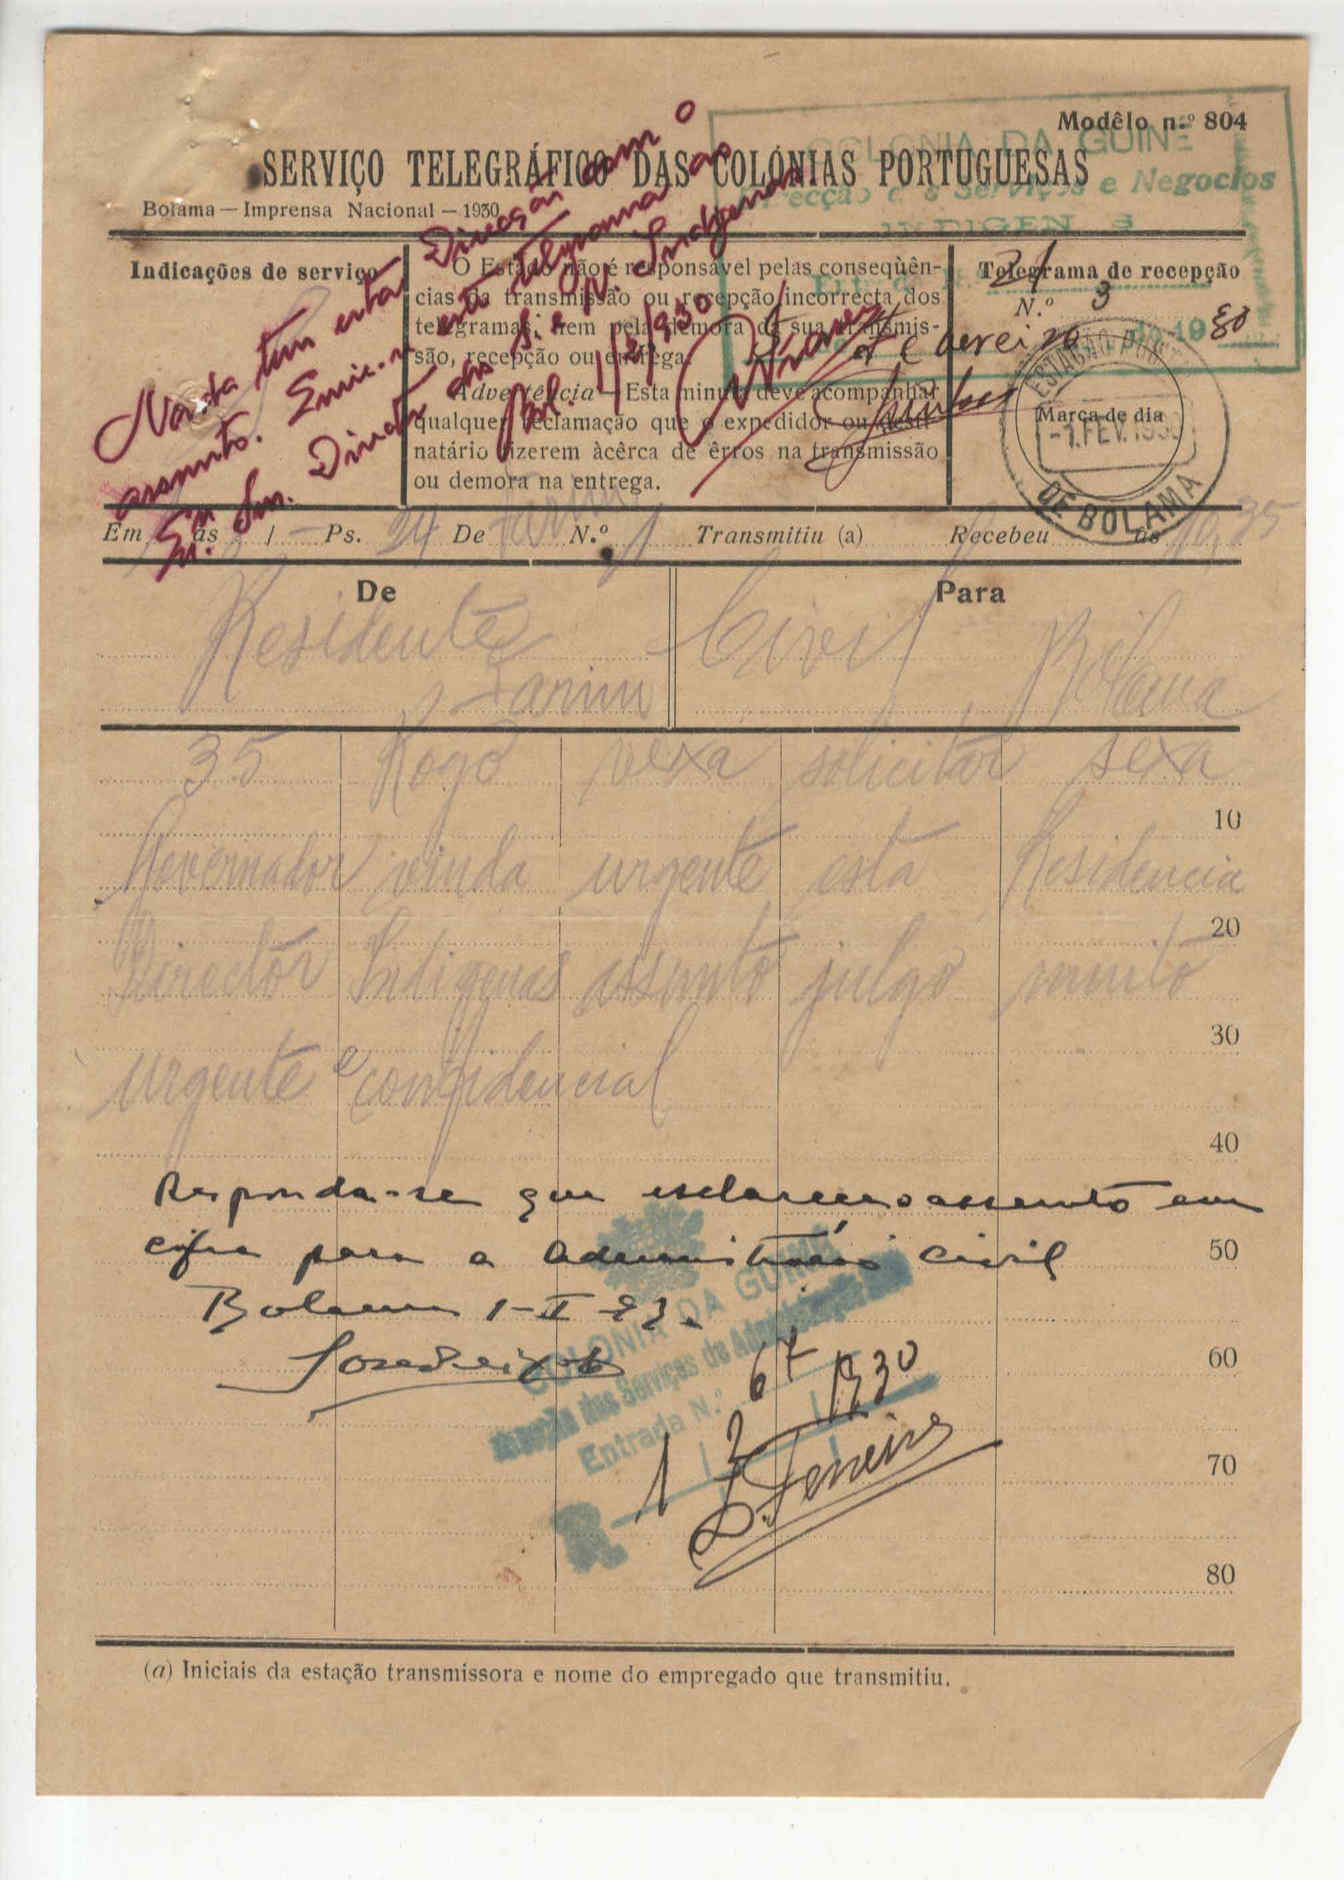 Modêlo n.º 804
COLONIA DA GUINÉ
SERVIÇO TELEGRÁFICO DAS COLÓNIAS PORTUGUESAS
Serviços e Negocios
Bolama — Imprensa Nacional — 1930
Indicações de serviço
O Estado não é responsável pelas conseqùên-
cias da transmissão ou recepção incorrecta dos
telegramas, nem pela demora da sua transmis-
são, recepção ou entrega.
Advertência — Esta minuta deve acompanhar
qualquer reclamação que o expedidor ou desti-
natário fizerem àcêrca de êrros na transmissão
ou demora na entrega.
Telegrama de recepção
N.º 3
de 19 30
Marca de dia
-1.FEV.
DE BOLAMA
Nada tem esta Direcção com o
assunto. Envie-se este telegrama ao
Ex.mo Snr. Director dos S. e N. Indigenas
Bol. 1/2/930
Em às Ps. 24 De Farim N.º 1 Transmitiu (a) Recebeu às 10,35
De
Para
Residente
Farim
Civil Bolama
35 Rogo vexa solicitar sexa
Governador vinda urgente esta Residencia
10
Director Indigenas assunto julgo muito
20
urgente e confidencial
30
40
Responda-se que esclareça o assunto em
cifra para a Administração Civil
50
Bolama 1-II-
COLONIA DA GUINÉ
dos Serviços de Administração
Entrada N.º 67
60
1 2 1930
D. Ferreira
70
80
(a) Iniciais da estação transmissora e nome do empregado que transmitiu.